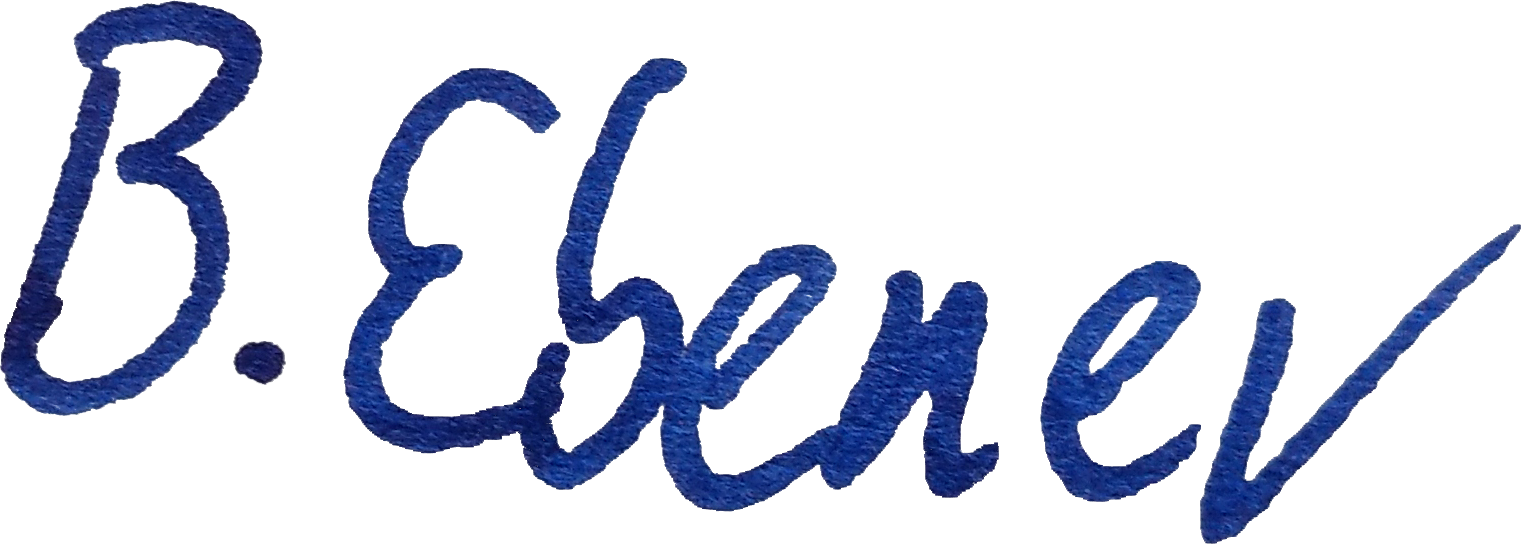 B. Ebenev